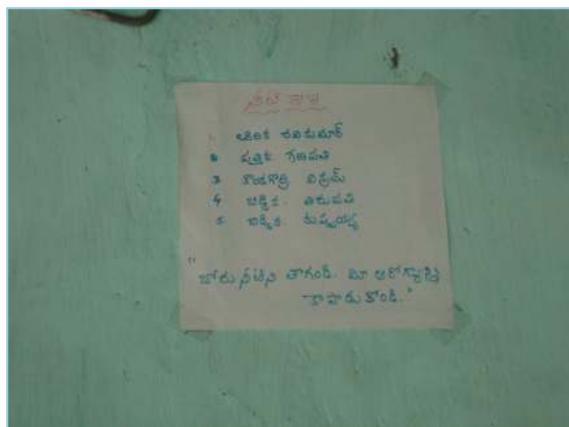 నీటి శాఖ
1 ఊరిక రవికుమార్
2 పత్రిక గణపతి
3 కొండగొర్రి విక్రమ్
4 బిడ్డిక తిరుపతి
5 బిడ్డిక కుప్పయ్య
"బోరు నీటిని తాగండి. మీ ఆరోగ్యాన్ని
కాపాడుకోండి."